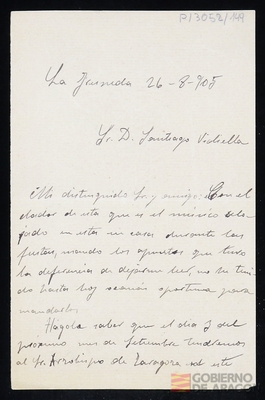 P/3052/149
La Fresneda 26-8-905
Sr. D. Santiago Vidiella
Mi distinguido Sr. y amigo: Con el
dador de esta que es el mismo
en esta su casa durante las
fiestas, mando los apuntes que tuvo
la deferencia de dejarme leer, no
do hasta hoy ocasión oportuna para
mandarlos
Hagole saber que el dia 3 del
próximo mes de Setiembre tendremos
al Sr. Arzobispo de Zaragoza en esta
GOBIERNO
DE ARAGON